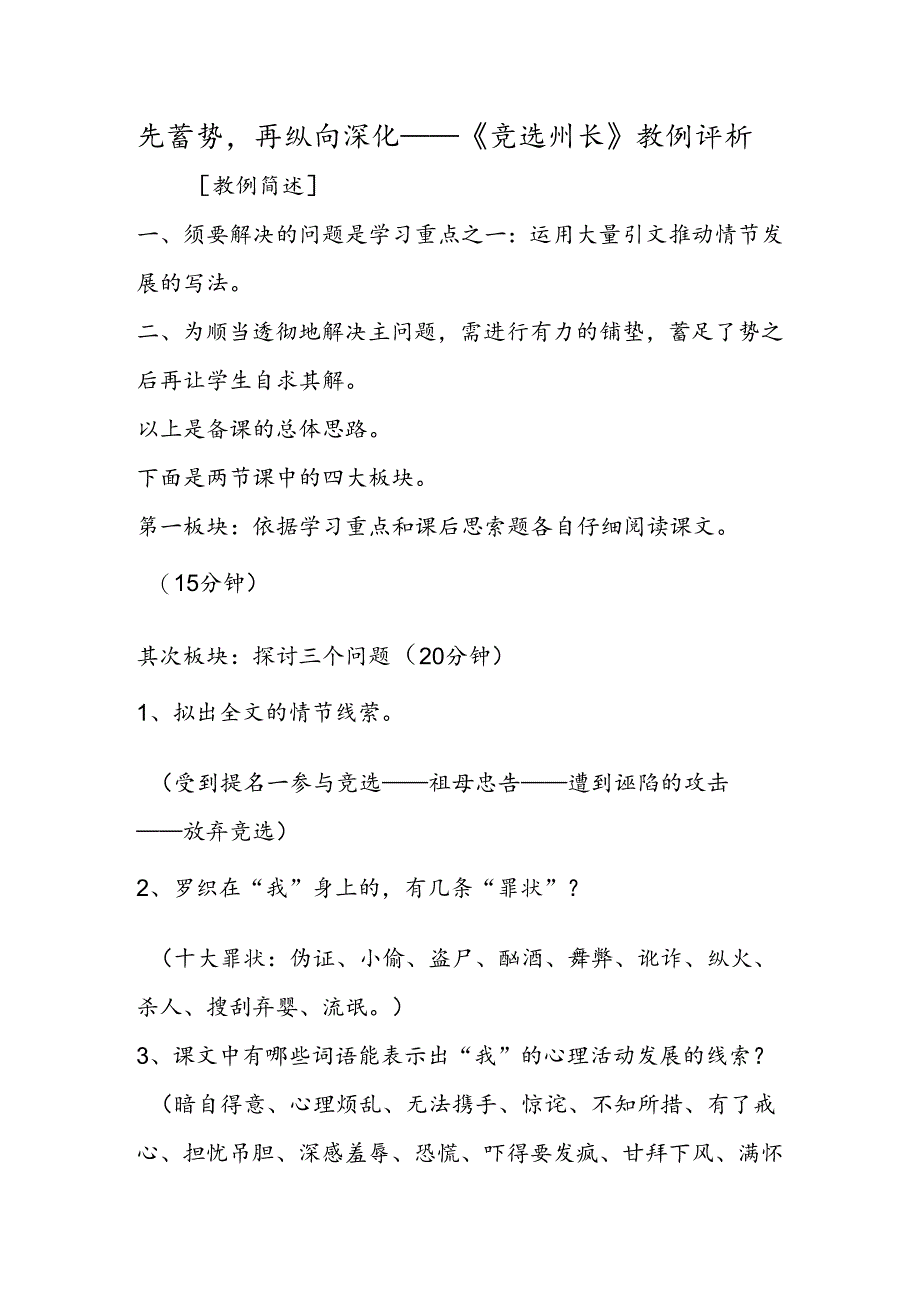 先蓄势，再纵向深化——《竞选州长》教例评析
［教例简述］
一、须要解决的问题是学习重点之一：运用大量引文推动情节发
展的写法。
二、为顺当透彻地解决主问题，需进行有力的铺垫，蓄足了势之
后再让学生自求其解。
以上是备课的总体思路。
下面是两节课中的四大板块。
第一板块：依据学习重点和课后思索题各自仔细阅读课文。
（15分钟）
其次板块：探讨三个问题（20分钟）
1、拟出全文的情节线萦。
（受到提名一参与竞选——祖母忠告——遭到诬陷的攻击
——放弃竞选）
2、罗织在“我”身上的，有几条“罪状”？
（十大罪状：伪证、小偷、盗尸、酗酒、舞弊、讹诈、纵火、
杀人、搜刮弃婴、流氓。）
3、课文中有哪些词语能表示出“我”的心理活动发展的线索？
（暗自得意、心理烦乱、无法携手、惊诧、不知所措、有了戒
心、担忧吊胆、深感羞辱、恐慌、吓得要发疯、甘拜下风、满怀